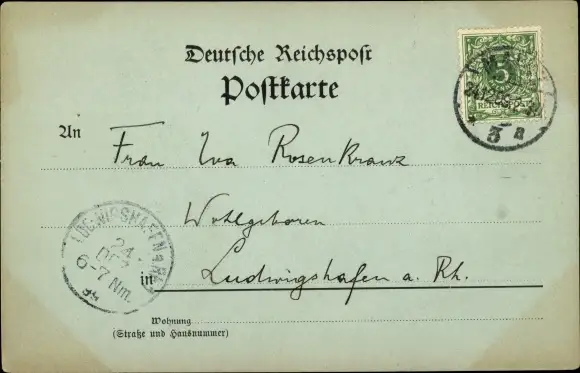 Deutsche Reichspost
Postkarte
5
REICHSPOST
3 a
An Frau Eva Rosenkranz
Wohlgeboren
LUDWIGSHAFEN a. Rh.
24.
DEZ
6-7 Nm.
in Ludwigshafen a. Rh.
Wohnung
(Straße und Hausnummer)